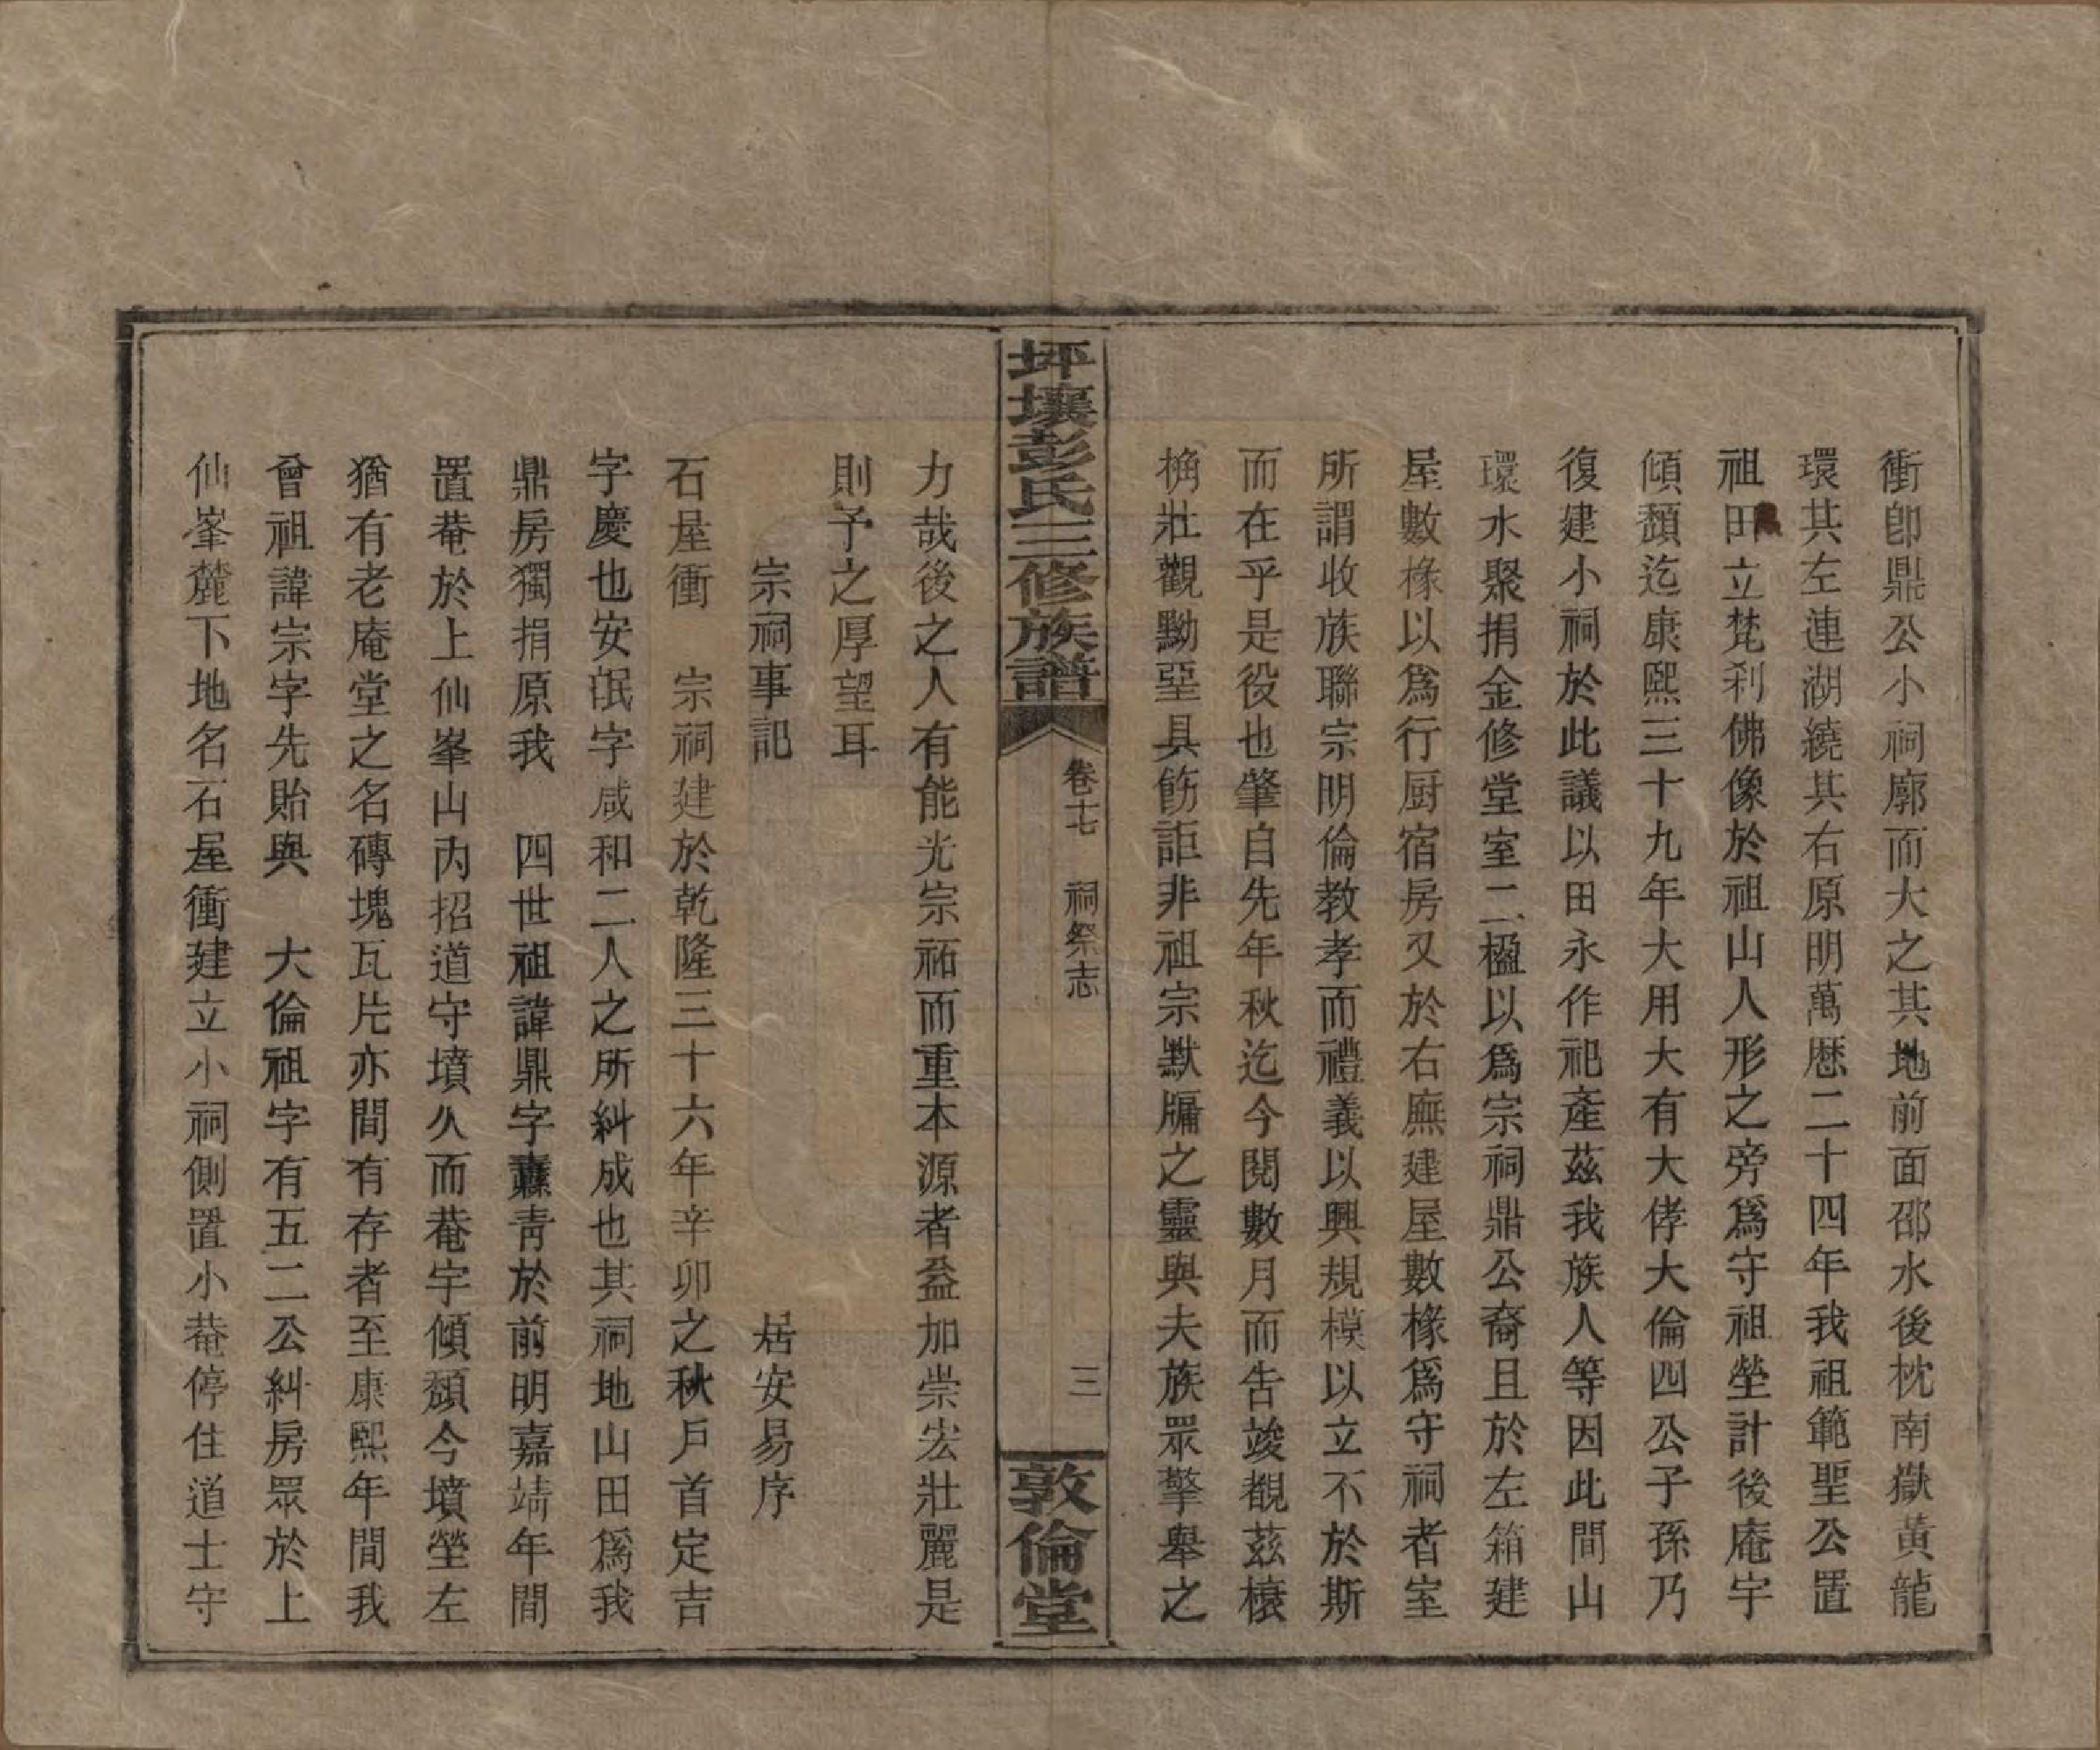 衝卽鼎公小祠廓而大之其地前面邵水後枕南嶽黃龍
環其左連湖繞其右原明萬歷二十四年我祖範聖公置
祖田立梵刹佛像於祖山人形之旁爲守祖塋計後庵宇
傾頽迄康熙三十九年大用大有大侼大倫四公子孫乃
復建小祠於此議以田永作祀產茲我族人等因此間山
環水聚捐金修堂室二楹以爲宗祠鼎公裔且於左箱建
屋數椽以爲行厨宿房又於右廡建屋數椽爲守祠者室
所謂收族聯宗明倫教孝而禮義以興規模以立不於斯
而在乎是役也肇自先年秋迄今閱數月而告竣覩茲榱
桷壯觀黝堊具飭詎非祖宗默牖之靈與夫族眾擎舉之
坪壤彭氏三修族譜 卷十七 祠祭志 三 敦倫堂
力哉後之人有能光宗祏而重本源者益加崇宏壯麗是
則予之厚望耳
宗祠事記 居安易序
石屋衝 宗祠建於乾隆三十六年辛卯之秋戶首定吉
字慶也安氓字咸和二人之所糾成也其祠地山田爲我
鼎房獨捐原我 四世祖諱鼎字纛靑於前明嘉靖年間
置菴於上仙峯山內招道守墳久而菴宇傾頽今墳塋左
猶有老庵堂之名磚塊瓦片亦間有存者至康熙年間我
曾祖諱宗字先貽與 大倫祖字有五二公糾房眾於上
仙峯麓下地名石屋衝建立小祠側置小菴停住道士守